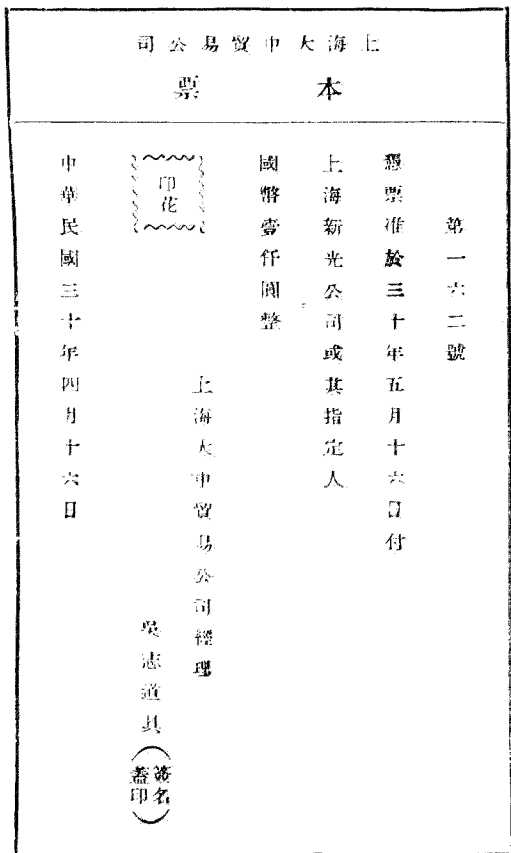 上海大中貿易公司
本票
第一六二號
憑票准於三十年五月十六日付
上海新光公司或其指定人
國幣壹仟圓整
上海大中貿易公司經理
吳志道具（簽名蓋印）
印花
中華民國三十年四月十六日